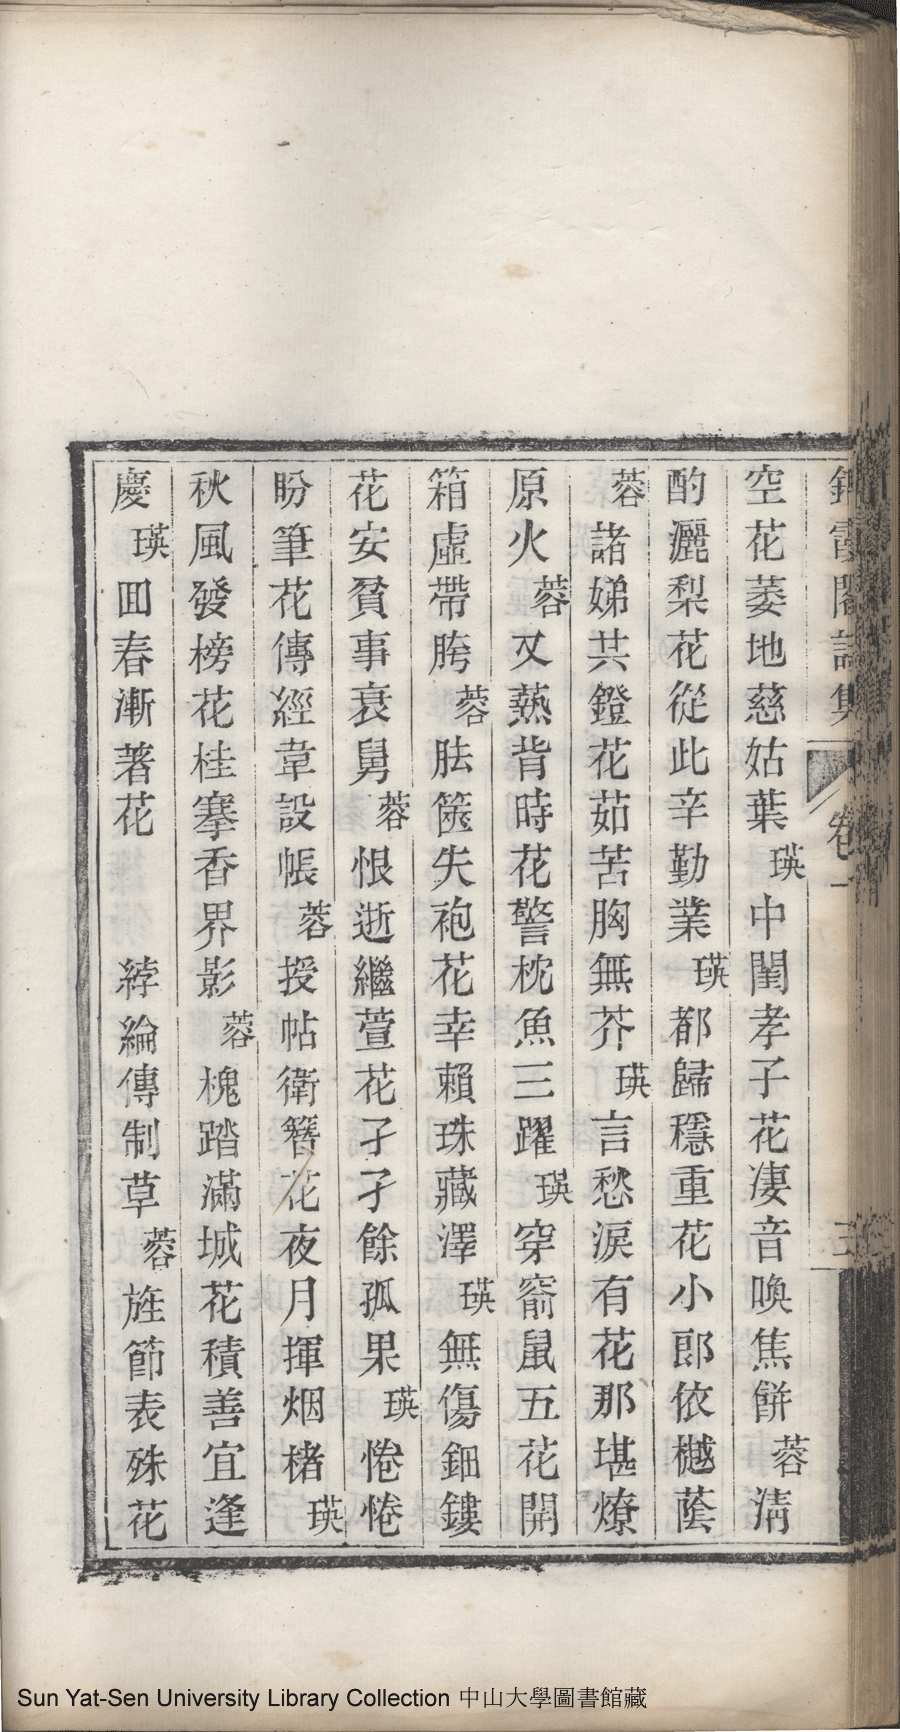 霞閣詩集 卷一 三
空花萎地慈姑葉瑛中閨孝子花凄音喚焦餅蓉淸
酌灑梨花從此辛勤業瑛都歸穩重花小郎依樾蔭
蓉諸娣共鐙花茹苦胸無芥瑛言愁淚有花那堪燎
原火蓉又爇背時花警枕魚三躍瑛穿窬鼠五花開
箱虛帶胯蓉胠篋失袍花幸賴珠藏澤瑛無傷鈿鏤
花安貧事衰舅蓉恨逝繼萱花孑孑餘孤果瑛惓惓
盼筆花傳經韋設帳蓉授帖衛簪花夜月揮烟楮瑛
秋風發榜花桂搴香界影蓉槐踏滿城花積善宜逢
慶瑛回春漸著花 綍綸傳制草蓉旌節表殊花
Sun Yat-Sen University Library Collection 中山大學圖書館藏